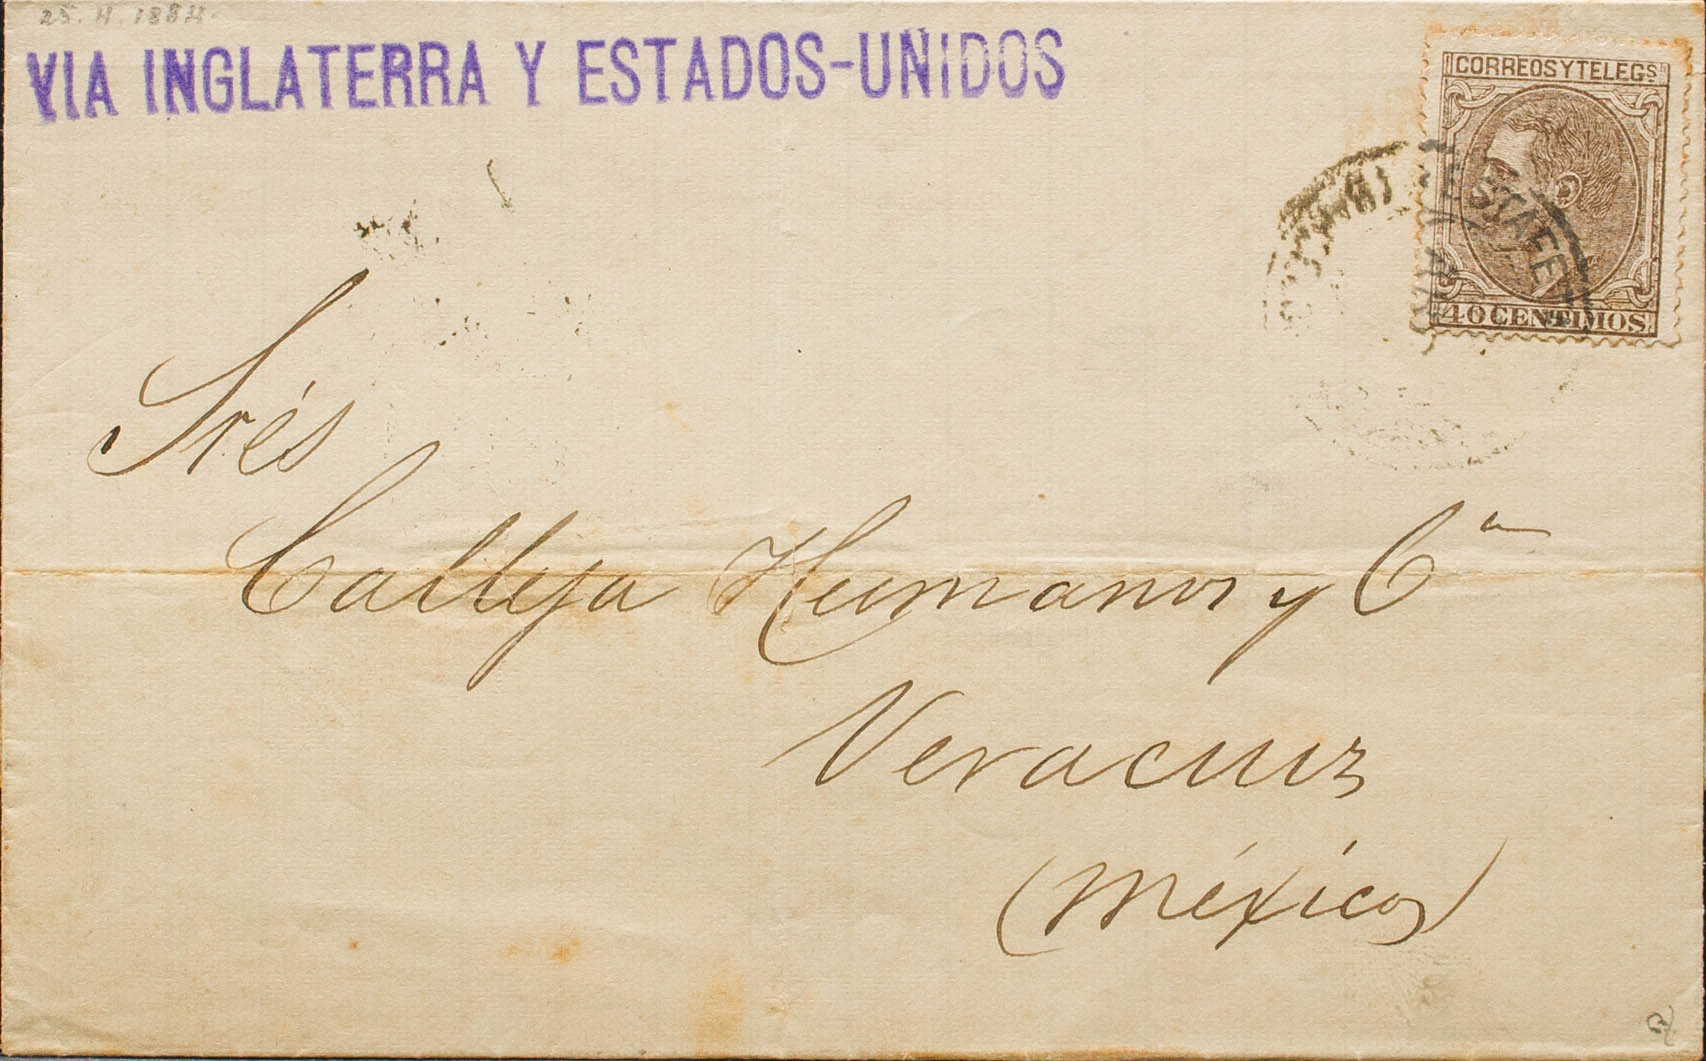 25.4.1884.
VIA INGLATERRA Y ESTADOS-UNIDOS
CORREOS Y TELEGS
ESTAFE
40 CENTIMOS
Srés
Calleja Hermanos y Cª
Veracruz
(México)